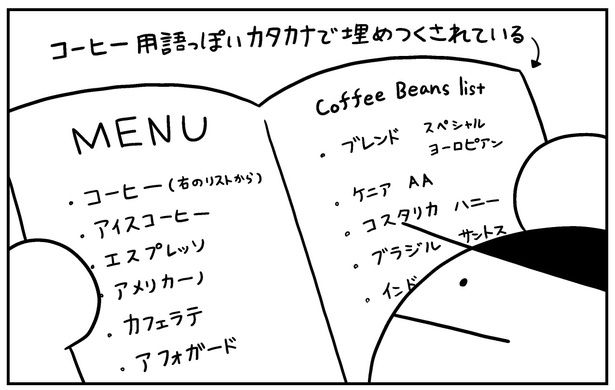 コーヒー用語っぽいカタカナで埋めつくされている
MENU
・コーヒー(右のリストから)
・アイスコーヒー
・エスプレッソ
・アメリカーノ
・カフェラテ
・アフォガード
Coffee Beans list
・ブレンド スペシャル
ヨーロピアン
・ケニア AA
・コスタリカ ハニー
・ブラジル サントス
・インド